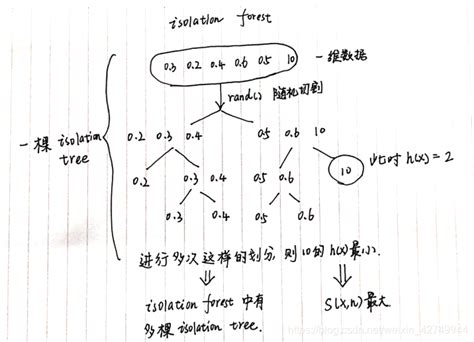 isolation forest
0.3 0.2 0.4 0.6 0.5 10 一维数据
rand() 随机切割
一棵 isolation tree
0.2 0.3 0.4 0.5 0.6 10
0.2 0.3 0.4 0.5 0.6 10 此时 h(x) = 2
0.3 0.4 0.5 0.6
进行多次这样的划分, 则10的h(x)最小.
isolation forest 中有 S(x,n)最大.
多棵 isolation tree.
https://blog.csdn.net/weixin_42749944